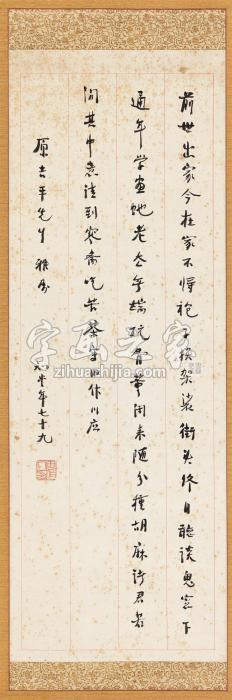 前世出家今在家不将袍子换袈裟街头终日听谈鬼窗下
通年学画蛇老去无端玩骨董闲来随分种胡麻诗君若
问其中意请到寒斋吃苦茶
原吉平先生 雅属
年七十九
字画之家
zihuazhijia.com